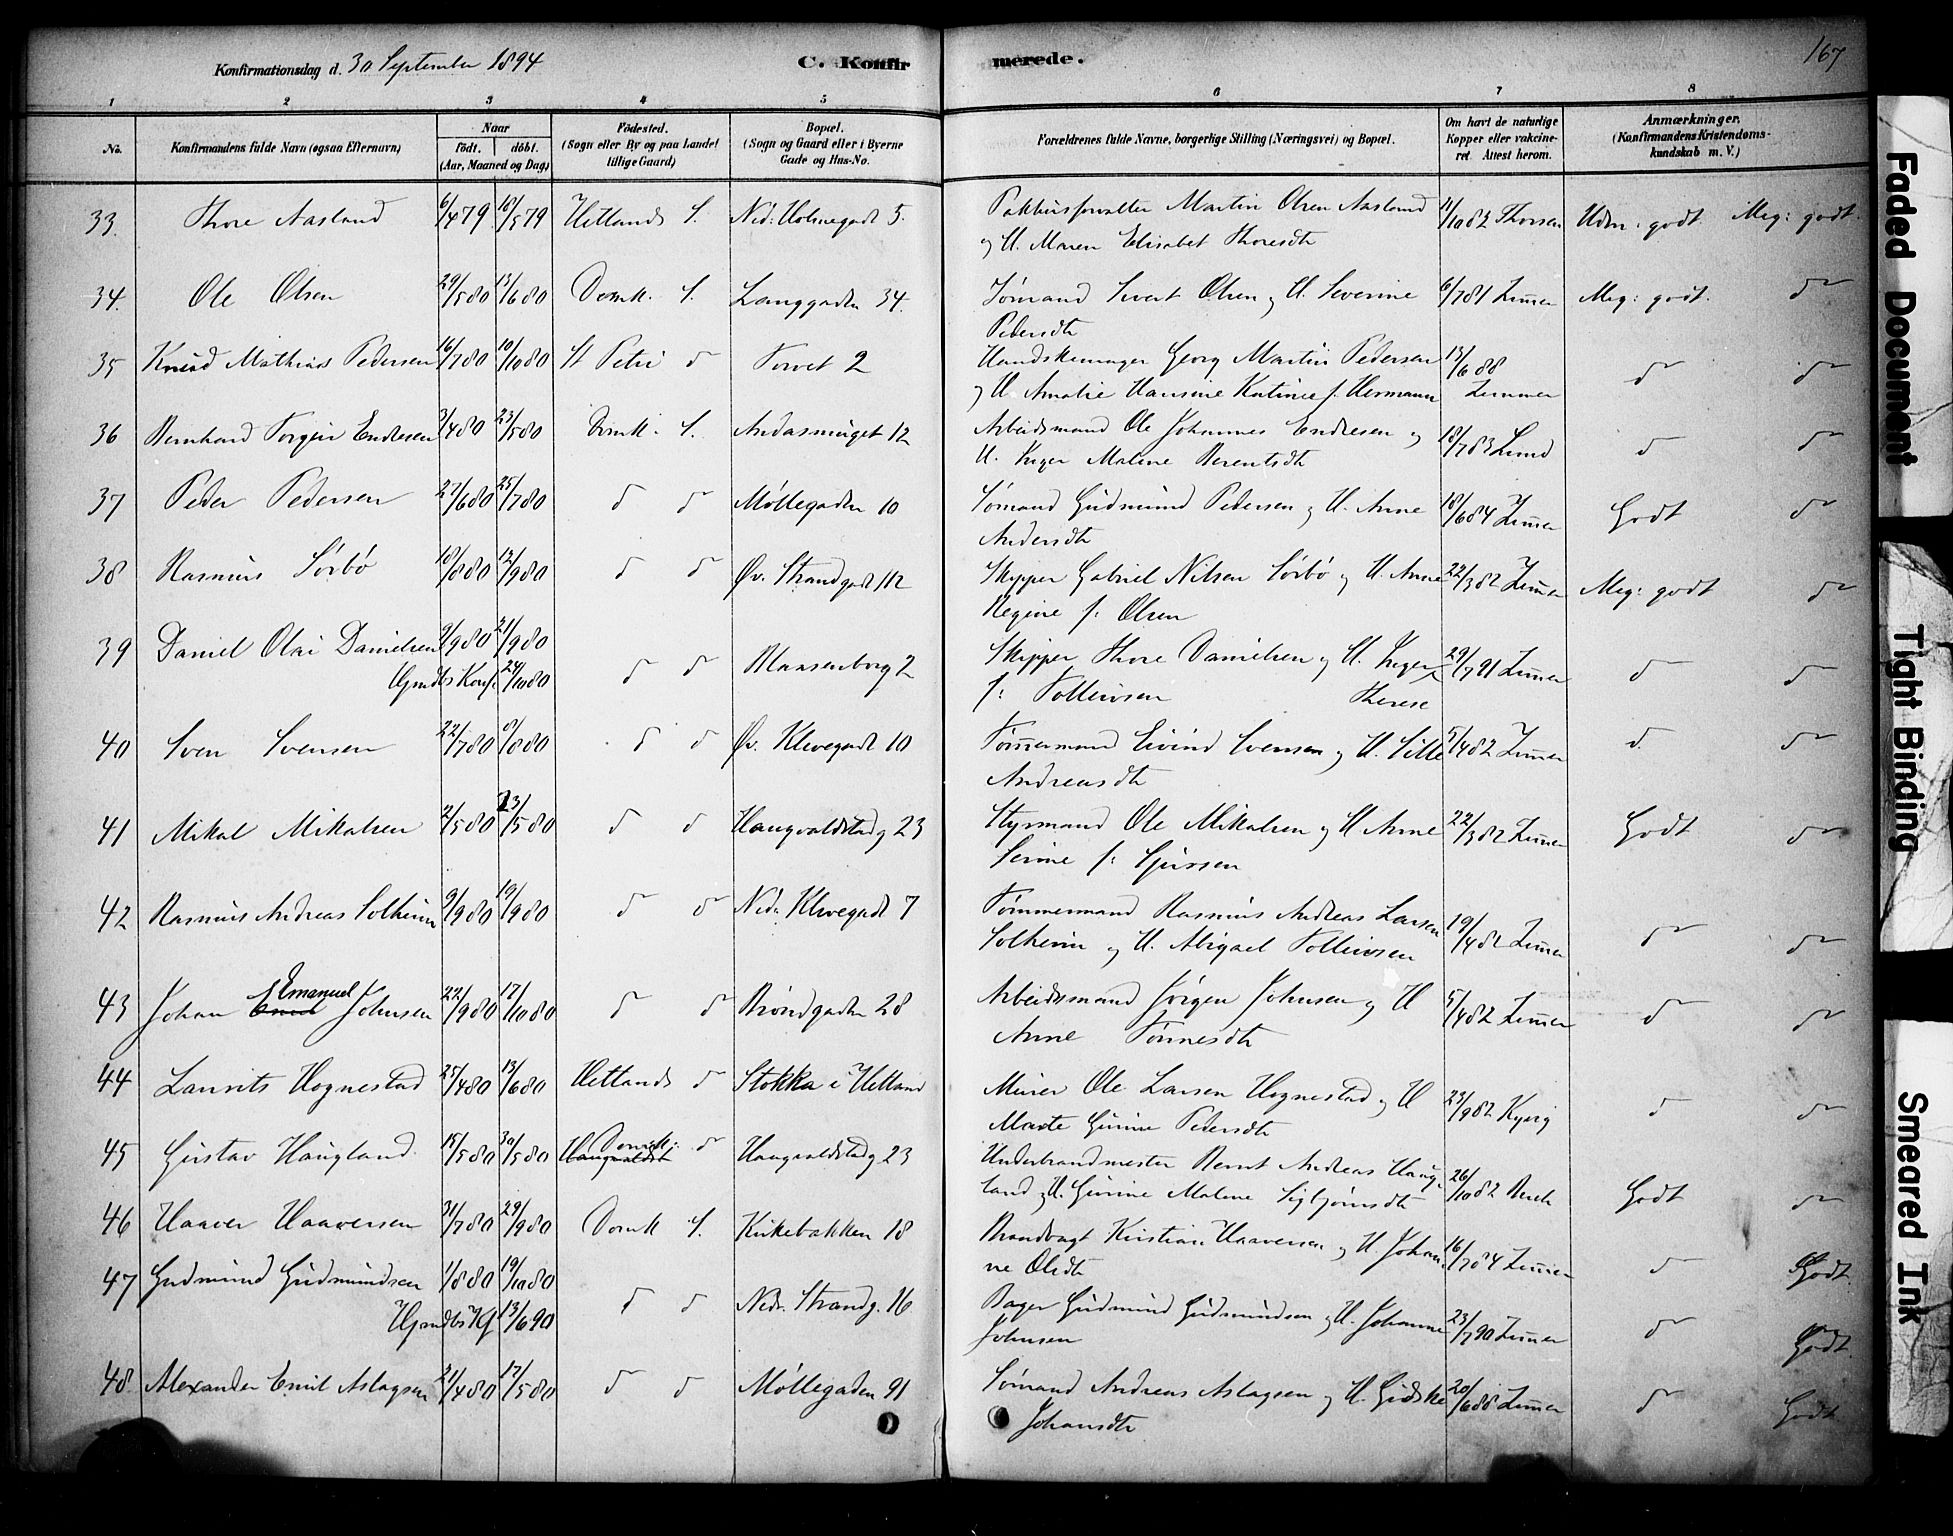 Konfirmationsdag d. 30 September 1894
C. Konfirmerede.
167
1 2 3 4 5 6 7 8
No.
Konfirmandens fulde Navn (ogsaa Efternavn)
Naar født. døbt. (Aar, Maaned og Dag)
Fødested. (Sogn eller By og paa Landet tillige Gaard)
Bopæl. (Sogn og Gaard eller i Byerne Gade og Hus-No.
Forældrenes fulde Navne, borgerlige Stilling (Næringsvei) og Bopæl.
Om havt de naturlige Kopper eller vakcineret. Attest herom.
Anmærkninger. (Konfirmandens Kristendomskundskab m. V.)
33. Thore Aasland 6/4 79 18/5 79 Hetlands S. Ned. Holmegadt 5. Pakhusforvalter Martin Olsen Aasland 11/10 83 Thorsen Udm: godt. Meg: godt.
og H. Maren Elisabet Thoresdtr
34. Ole Olsen 29/5 80 13/6 80 Domk. S. Langgaden 34. Sømand Sivert Olsen og H. Severine 6/7 81 Zimmer Meg: godt. do
Pedersdtr
35 Knud Mathias Pedersen 16/7 80 10/10 80 St Petri do Torvet 2 Handskemager Georg Martin Pedersen 13/6 88 do do
og H Amalie Hansine Katinca f. Hermann Zimmer
36 Bernhard Torgeir Endresen 3/4 80 23/5 80 Domk. S. Andasmuget 12 Arbeidsmand Ole Johannes Endresen og 18/7 83 Lund do do
H. Inger Malene Berentsdtr
37 Peder Pedersen 27/6 80 25/7 80 do do Møllegaden 10 Sømand Gudmund Pedersen og H. Anne 18/6 84 Zimmer Godt do
Andersdtr
38 Rasmus Sørbø 18/8 80 12/9 80 do do Øv. Strandgadt 112 Skipper Gabriel Nilsen Sørbø og H. Anne 22/3 82 Zimmer Meg: godt do
Regine f: Olsen
39 Daniel Olai Danielsen 9/9 80 21/9 80 Skipper Thore Danielsen og H. Inger
Hjmdbs Konf. 24/10 80 do do Blaasenborg 2 29/7 91 Zimmer do do
f: Tollevsen Therese
40 Sven Svensen 22/7 80 8/8 80 do do Øv. Klevegadt 10 Tømmermand Eivind Svensen og H. Sille 5/4 82 Zimmer do do
Andreasdtr
41 Mikal Mikalsen 2/5 80 23/5 80 do do Haugvaldstadg 23 Styrmand Ole Mikalsen og H Anne 22/3 82 Zimmer Godt do
Serine f: Sjursen
42 Rasmus Andreas Solheim 9/9 80 19/9 80 do do Ned. Klevegadt 7 Tømmermand Rasmus Andreas Larsen 19/4 82 Zimmer do do
Solheim og H. Abigael Tollevsen
43 Johan Emanuel Johnsen 22/9 80 17/10 80 do do Brøndgaden 28 Arbeidsmand Jørgen Johnsen og H 5/4 82 Zimmer do do
Anne Tønnesdtr
44 Laurits Hognestad 25/4 80 13/6 80 Hetlands do Stokka i Hetland Murer Ole Larsen Hognestad og H 23/9 82 Kyvig do do
Marte Gurine Pedersdtr
45 Gustav Haugland 15/5 80 30/5 80 Haugvaldst Domk: do Haugvaldstadg 23 Underbrandmester Bernt Andreas Haug-
land og H. Gurine Malene Sigbjørnsdtr 26/10 82 Godt do
46 Haaver Haaversen 31/7 80 29/9 80 Domk S. Kirkebakken 18 Brandvagt Kristian Haaversen og H. Johan- 16/7 84 Zimmer do Godt.
ne Olsdtr
47 Gudmund Gudmundsen 1/8 80 19/10 80 do do Nedr. Strandg. 16 Bager Gudmund Gudmundsen og H. Johanne 23/7 90 Zimmer do Godt.
Hjmdbs 13/6 90 Johnsen
48. Alexander Emil Aslagsen 21/4 80 17/5 80 do do Møllegaden 91 Sømand Andreas Aslagsen og H. Gidske 20/6 88 Zimmer do Godt
Johansdtr
Faded Document
Tight Binding
Smeared Ink